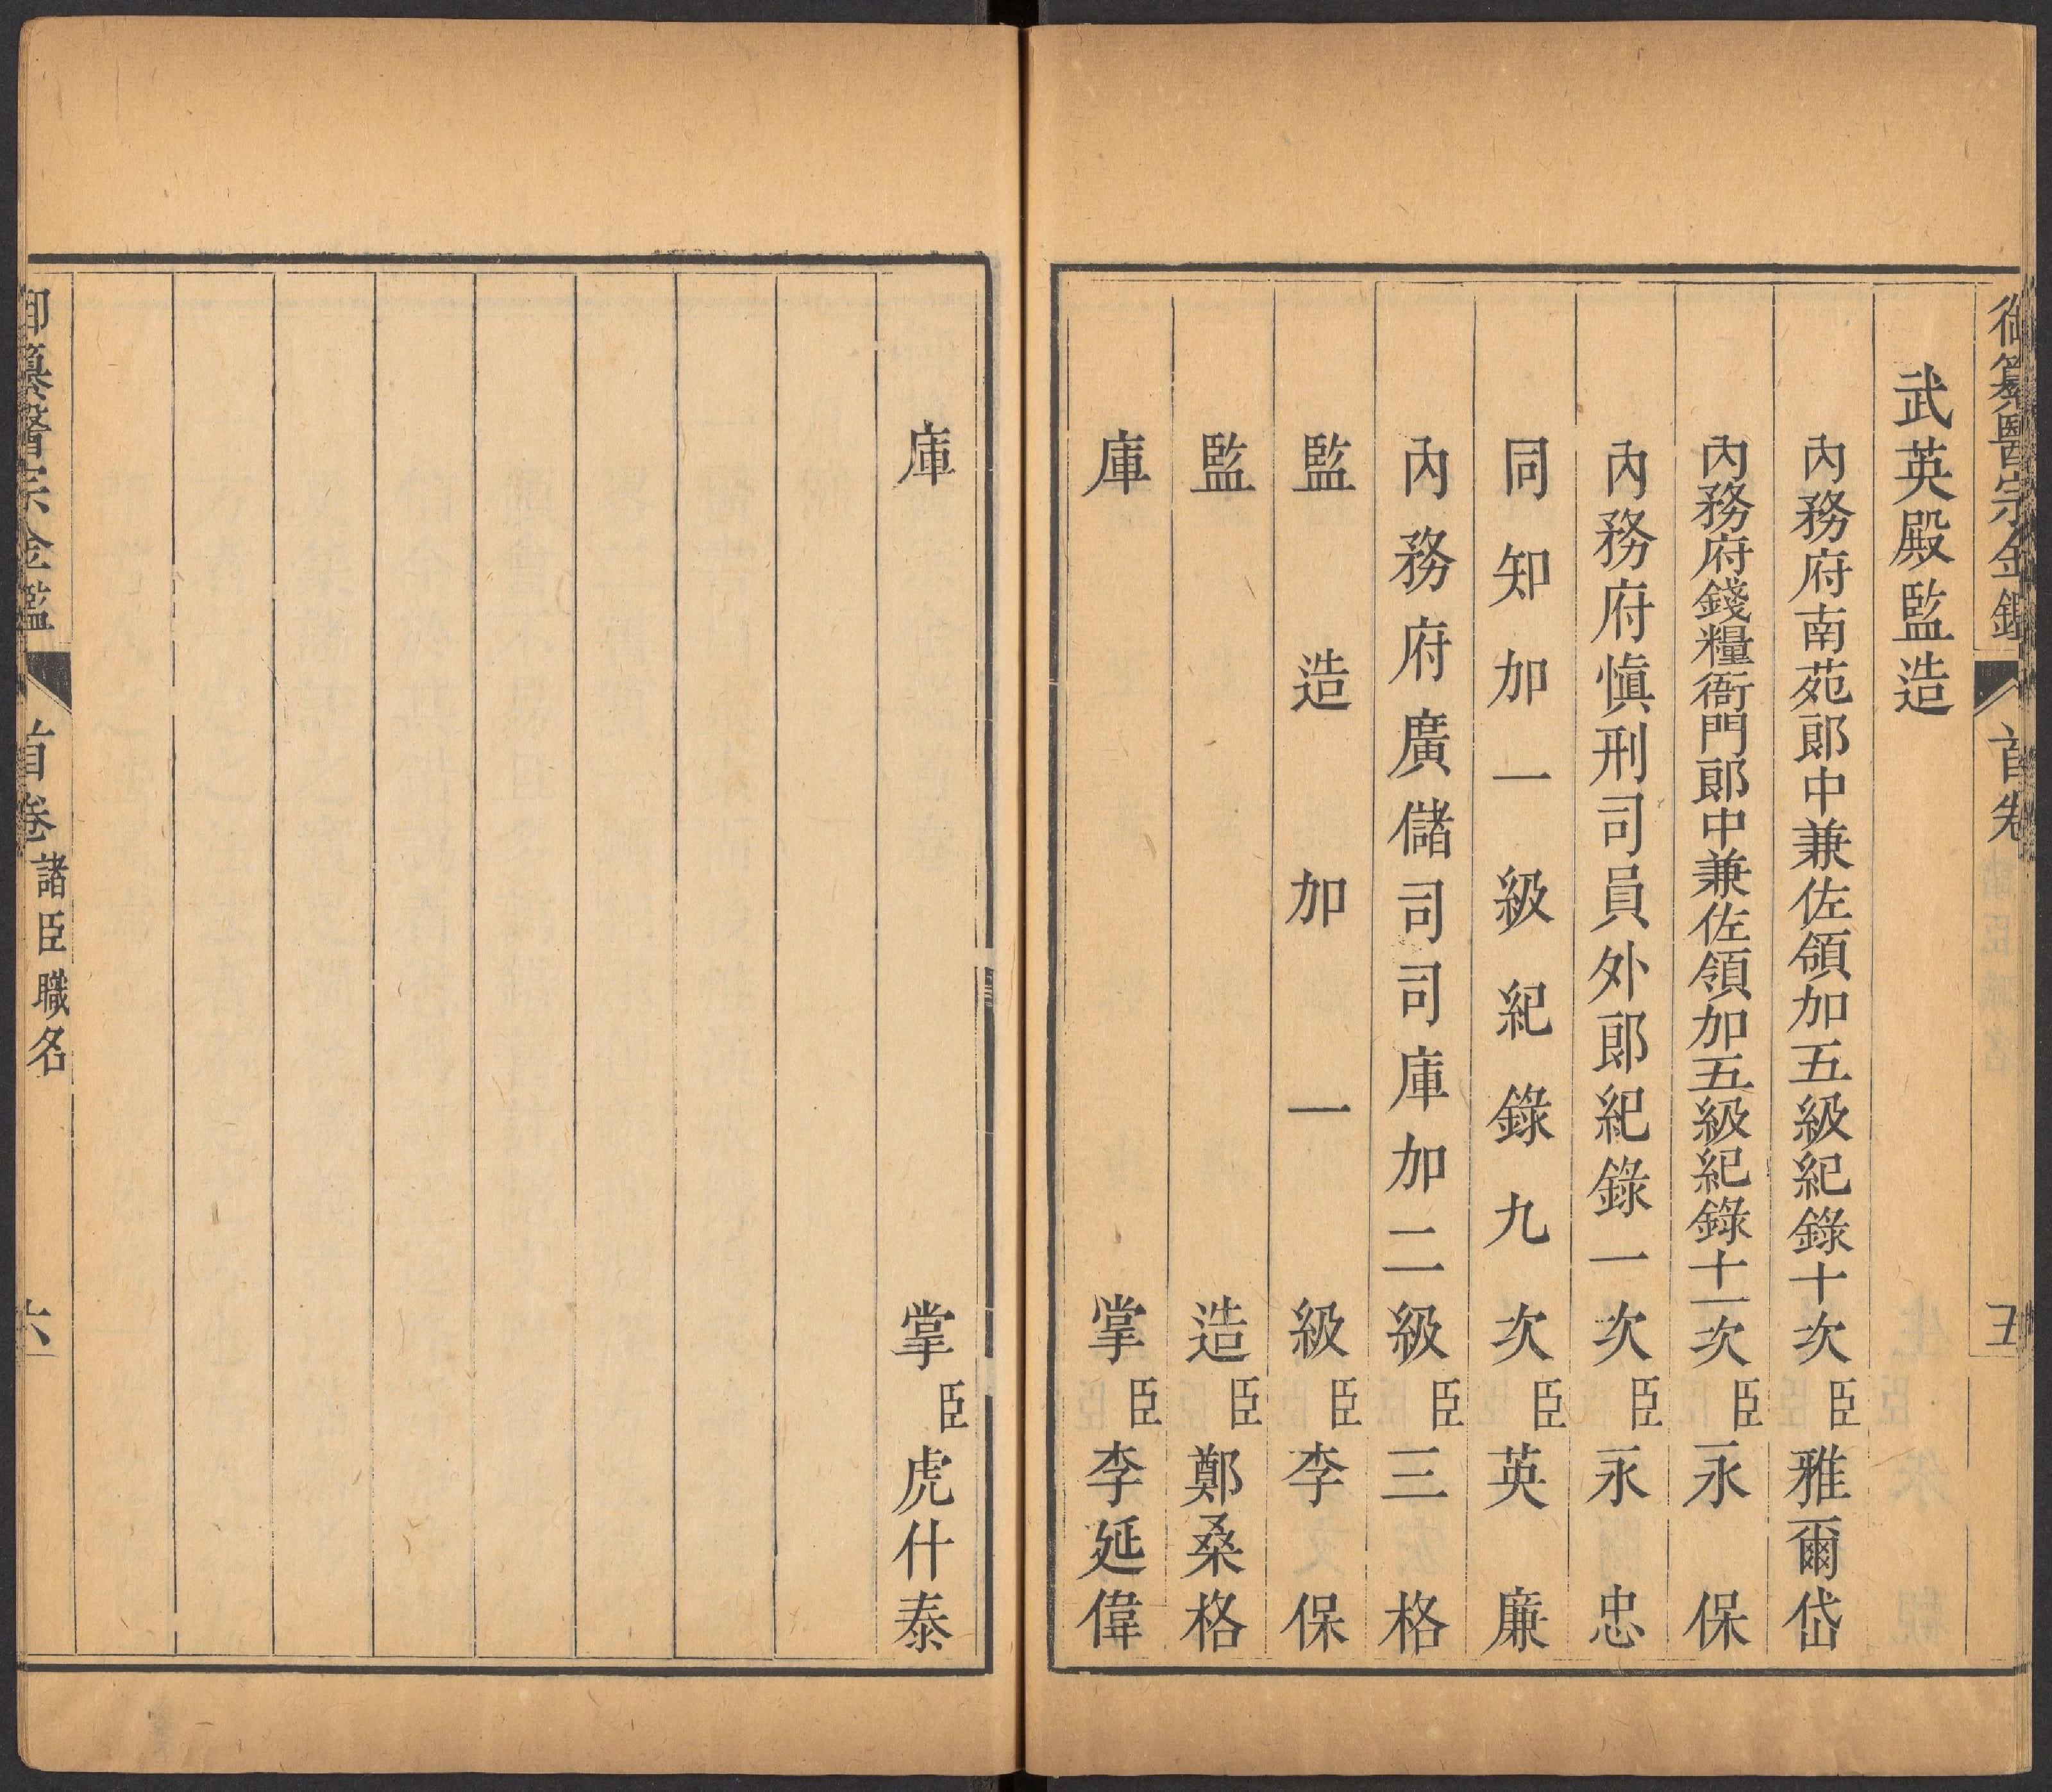 御纂醫宗金鑑 首卷 五
武英殿監造
內務府南苑郎中兼佐領加五級紀錄十次臣雅爾岱
內務府錢糧衙門郎中兼佐領加五級紀錄十一次臣永保
內務府愼刑司員外郎紀錄一次臣永忠
同知加一級紀錄九次臣英廉
內務府廣儲司司庫加二級臣三格
監造加一級臣李保
監造臣鄭桑格
庫掌臣李延偉
庫掌臣虎什泰
御纂醫宗金鑑 首卷 諸臣職名 六